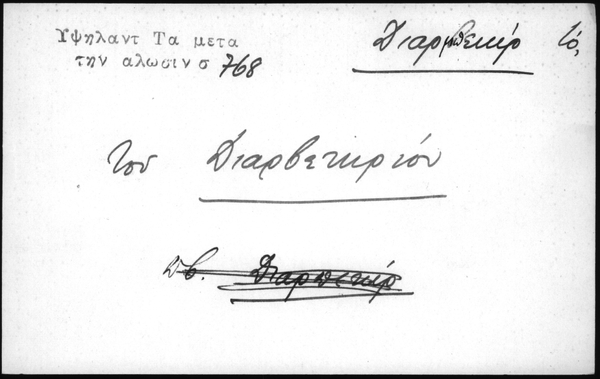 Υψηλαντ Τα μετα
την αλωσιν σ 768
Διαρμπεκίρ τό,
του Διαρβεκιριού
Διαρπεκίρ